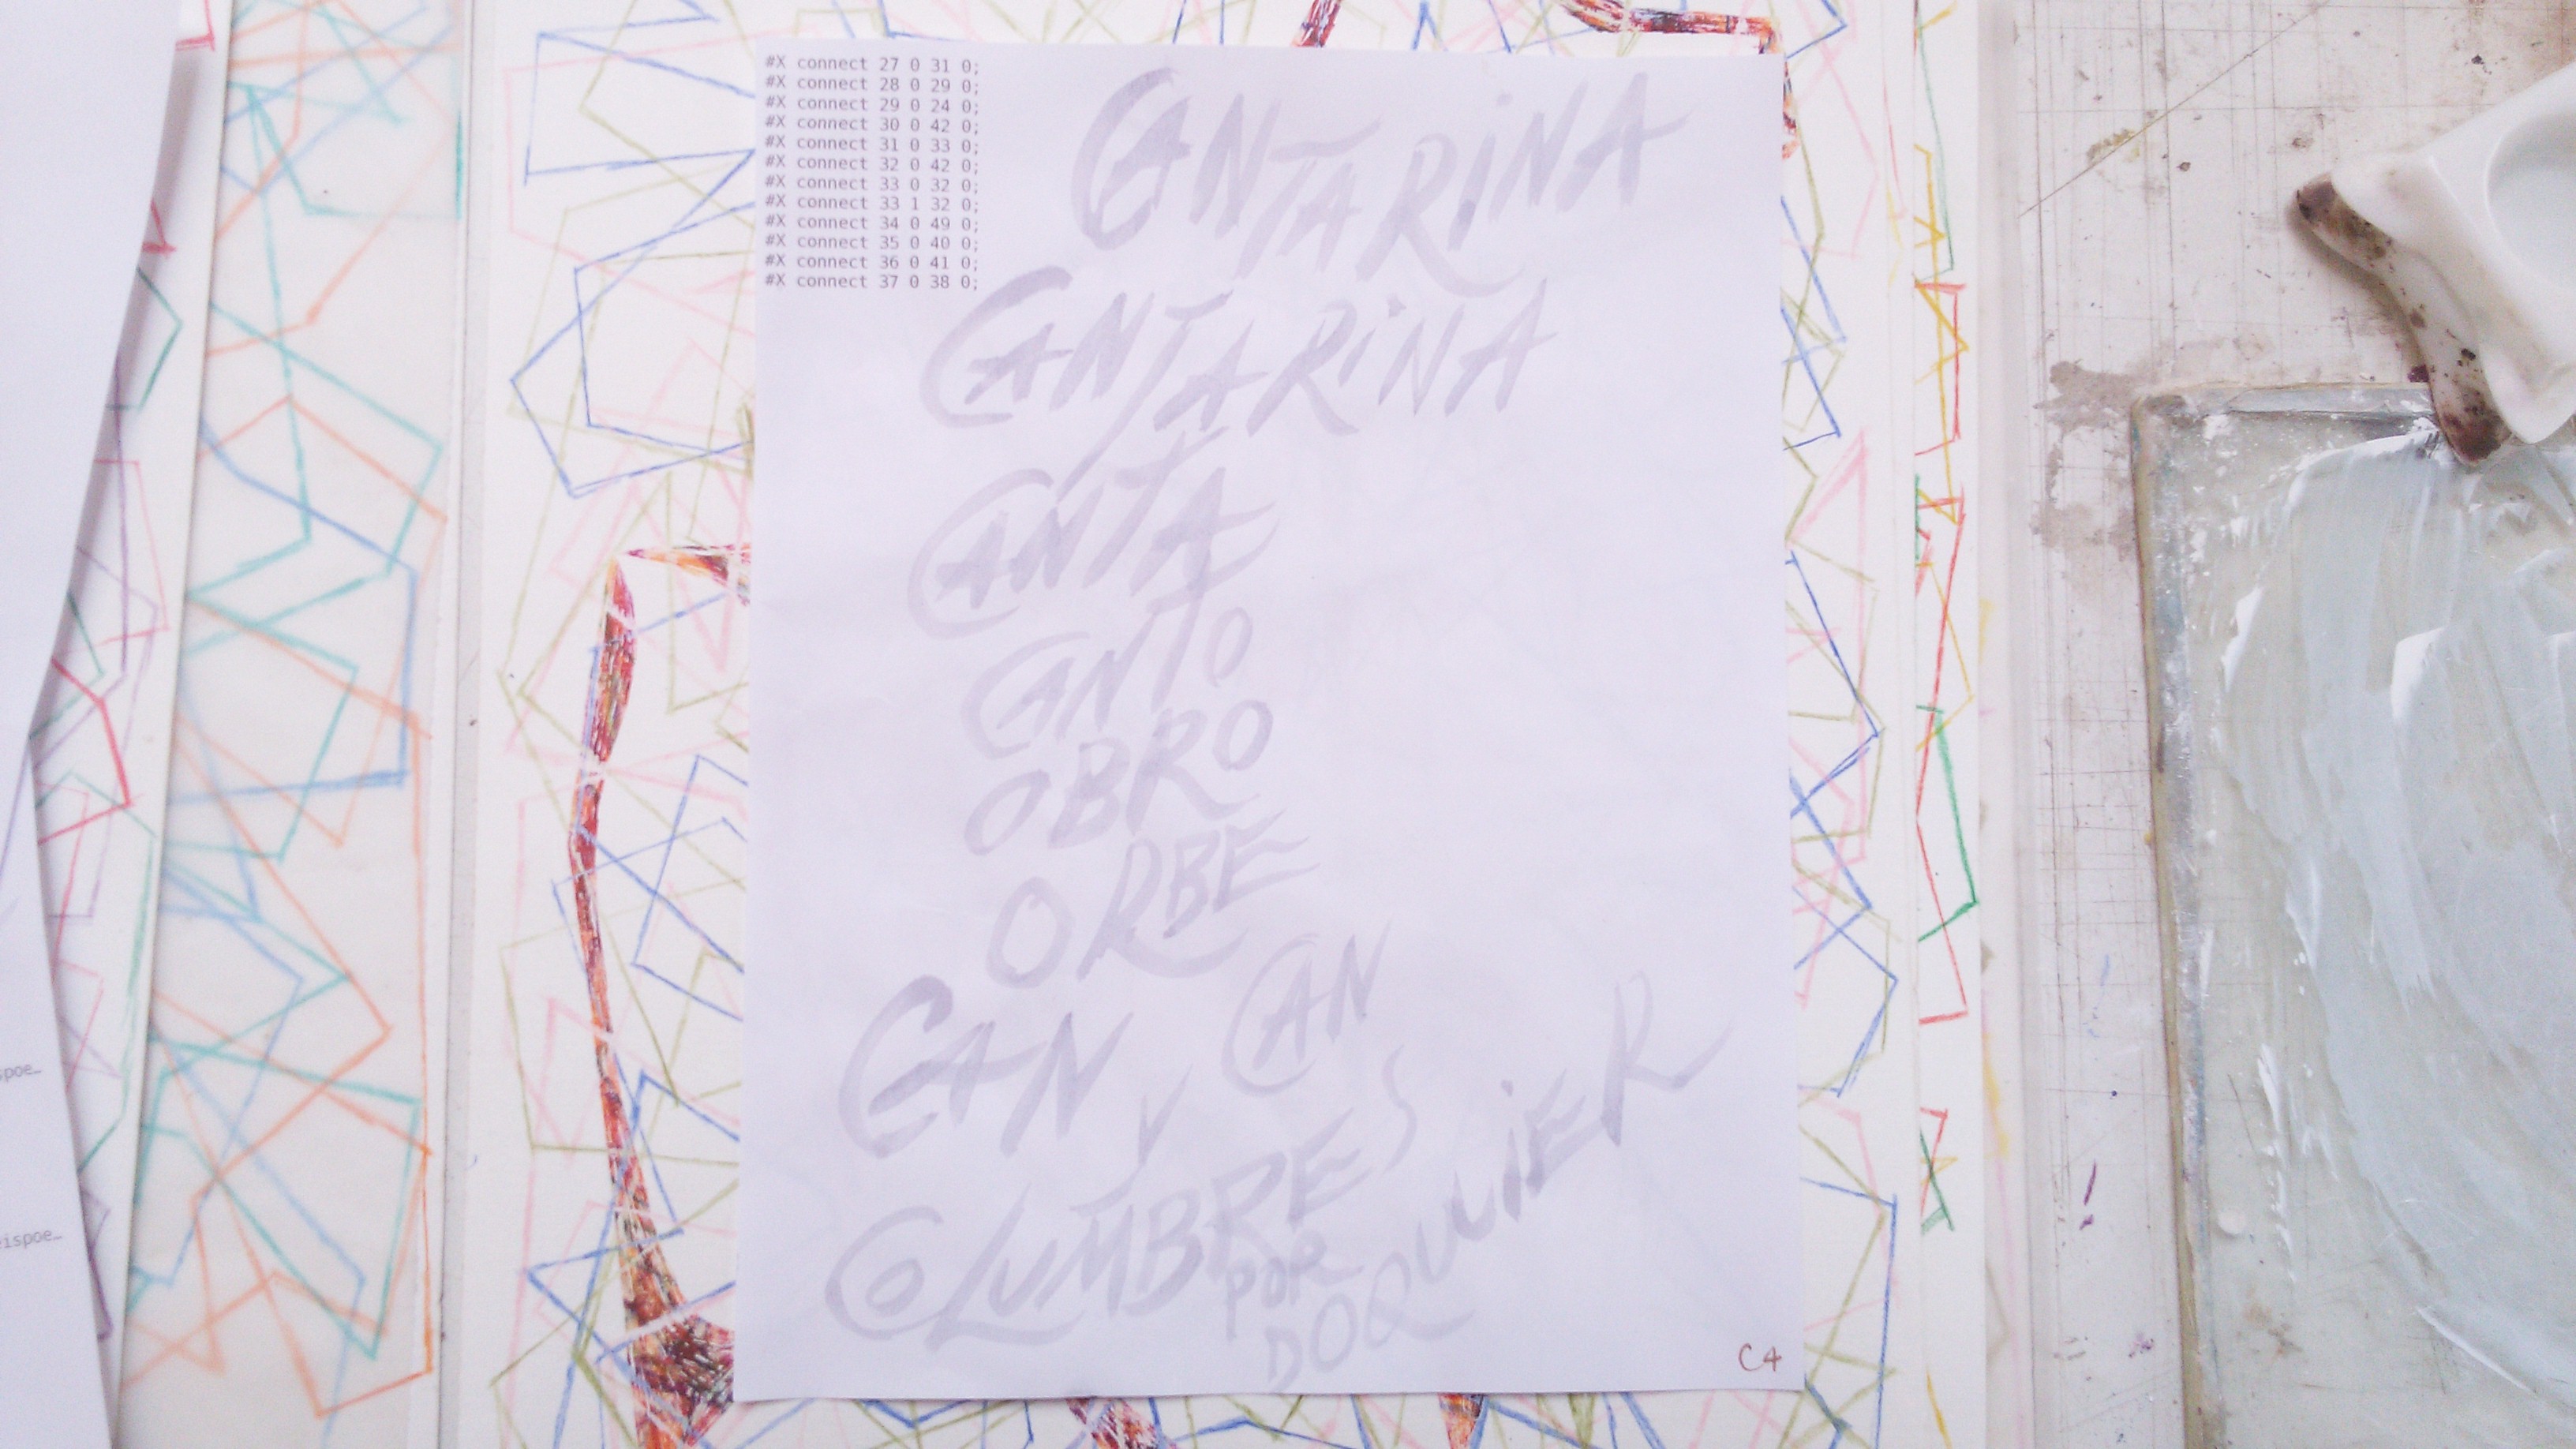 #X connect 27 0 31 0;
#X connect 28 0 29 0;
#X connect 29 0 24 0;
#X connect 30 0 42 0;
#X connect 31 0 33 0;
#X connect 32 0 42 0;
#X connect 33 0 32 0;
#X connect 33 1 32 0;
#X connect 34 0 49 0;
#X connect 35 0 40 0;
#X connect 36 0 41 0;
#X connect 37 0 38 0;
CANTARiNA
CANTARiNA
CANTA
CANTO
OBRO
ORBE
CAN y CAN
COLUMBRES
POR
DOQUUiER
C4
spoe…
ispoe…